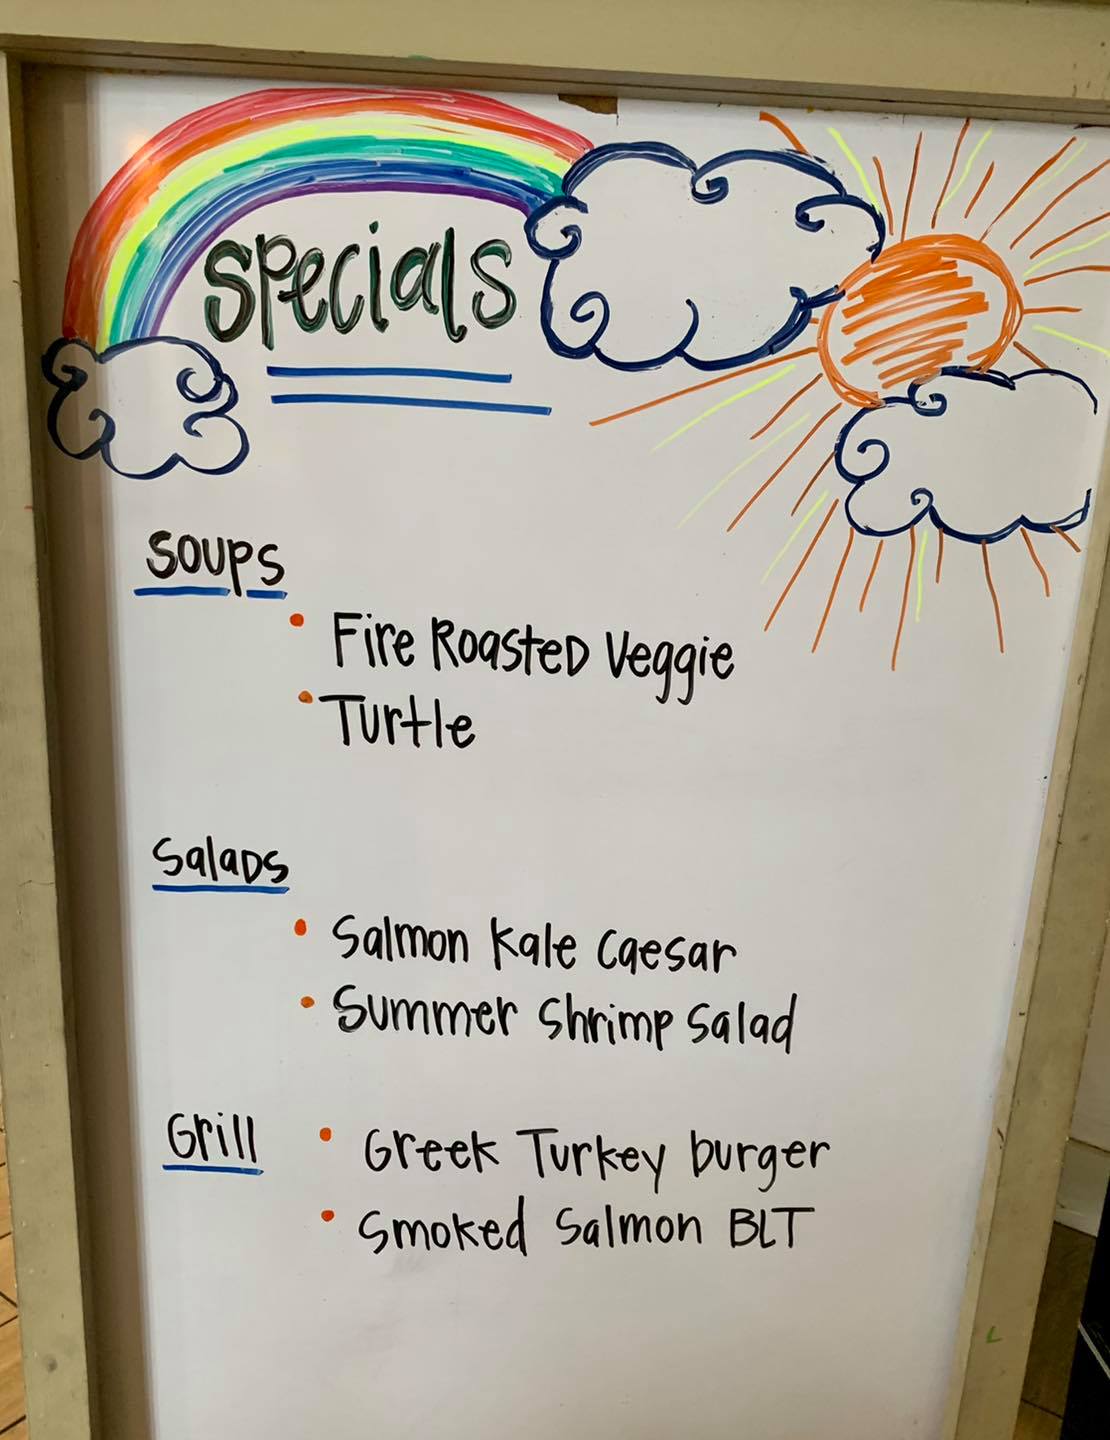 Specials
Soups
• Fire Roasted Veggie
• Turtle
Salads
• Salmon Kale Caesar
• Summer Shrimp Salad
Grill • Greek Turkey burger
• Smoked Salmon BLT